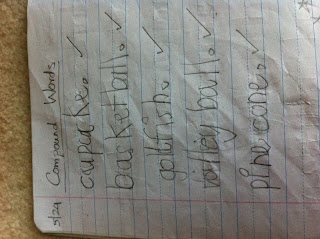 5/24 Compound Words
cupcake. ✓
basketball. ✓
goldfish. ✓
volleyball. ✓
pinecone. ✓